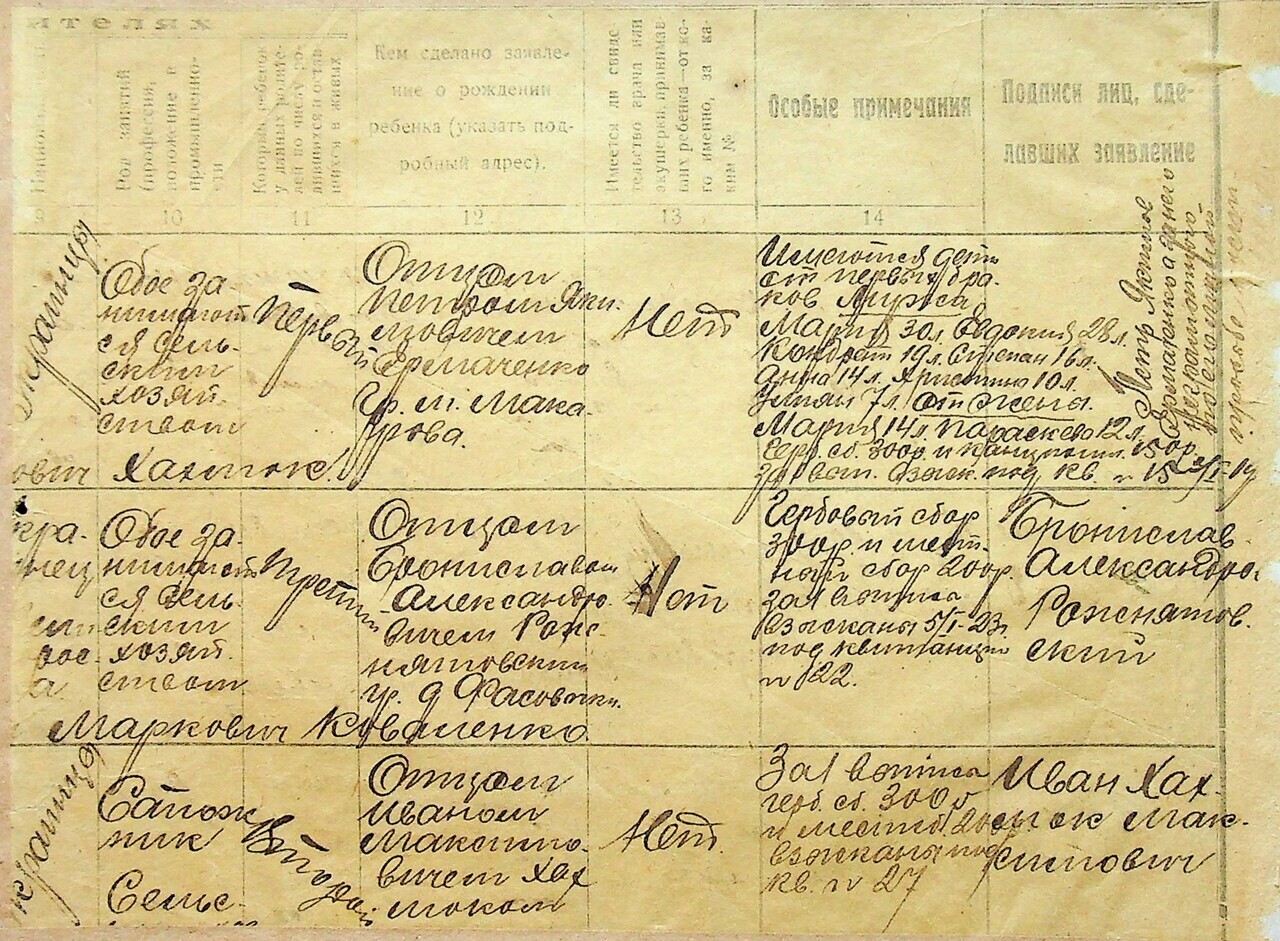 ителях
Род занятий
(профессия,
положение в
промышленно-
сти
Который ребенок
у данных родите-
лей по числу ро-
дившихся и остав-
шихся в живых
Кем сделано заявле-
ние о рождении
ребенка (указать под-
робный адрес).
Имеется ли свиде-
тельство врача или
акушерки, принимав-
ших ребенка—от ко-
го именно, за ка-
ким №
Особые примечания
Подписи лиц, сде-
лавших заявление
9
10
11
12
13
14
Обое за-
нимают
ся сель-
ским
хозяй-
ством
Первый
Отцом
Петром Яки-
мовичем
Ермаченко
Гр. м. Мака-
рова.
Нет
Имеются дети
от первых бра-
ков Мужа
Мария 30 л. Евдокия 28 л.
Кондрат 19 л. Степан 16 л.
Анна 14 л. Христина 10 л.
Ульян 7 л. от жены.
Мария 14 л. Параскева 12 л.
Герб. сб. 300р. и
за 1 вып. взыск. под кв. № 15
Петр
Ермаченко а за него
неграмотного
ович Хахлюк.
кра-
нец
Обое за-
нимают
ся сель-
ским
хозяй-
ством
Третий
Отцом
Брониславом
Александро-
вичем Рож-
нятовским
гр. д Фасовочки.
Нет
Гербовый сбор
300р. и мест-
ный сбор 200р.
за 1 выпись
взысканы 5/I-23г.
под квитанции
№ 22.
Броніслав
Александро.
Рожнятов.
ский
Маркович Коваленко
Сапож
ник
Сельс-
Второй
Отцом
Иваном
Максимо-
вичем Хах
люком
Нет.
За 1 выпись
герб. сб. 300р
и местн. 200р.
взысканы под
кв. № 27
Иван Хах-
люк Мак-
симович